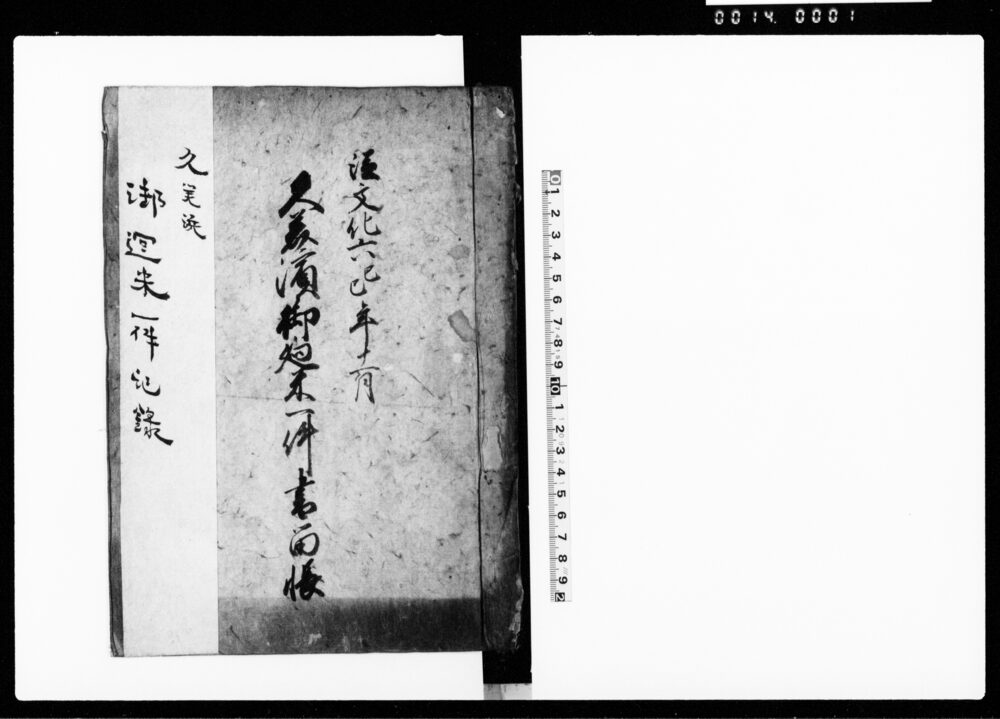 0014. 0001
文化六巳年十一月
久美濱御廻米一件書留帳
久美浜
御廻米一件記録
0 1 2 3 4 5 6 7 8 9 10 1 2 3 4 5 6 7 8 9 2